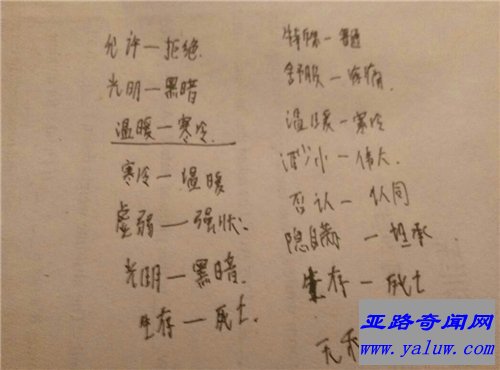 允许—拒绝
光明—黑暗
温暖—寒冷
寒冷—温暖
虚弱—强壮
光明—黑暗
生存—死亡
特殊—普通
舒服—疼痛
温暖—寒冷
渺小—伟大
否认—认同
隐瞒—坦承
生存—死亡
无
亚路奇闻网
www.yaluw.com